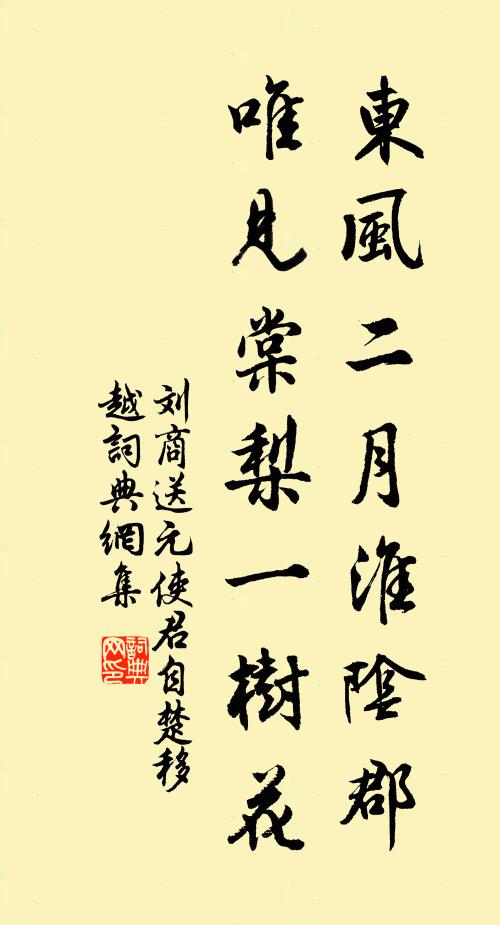 東風二月淮陰郡
唯見棠梨一樹花
刘商送元使君自楚移
越詞典網集
詞典
网印